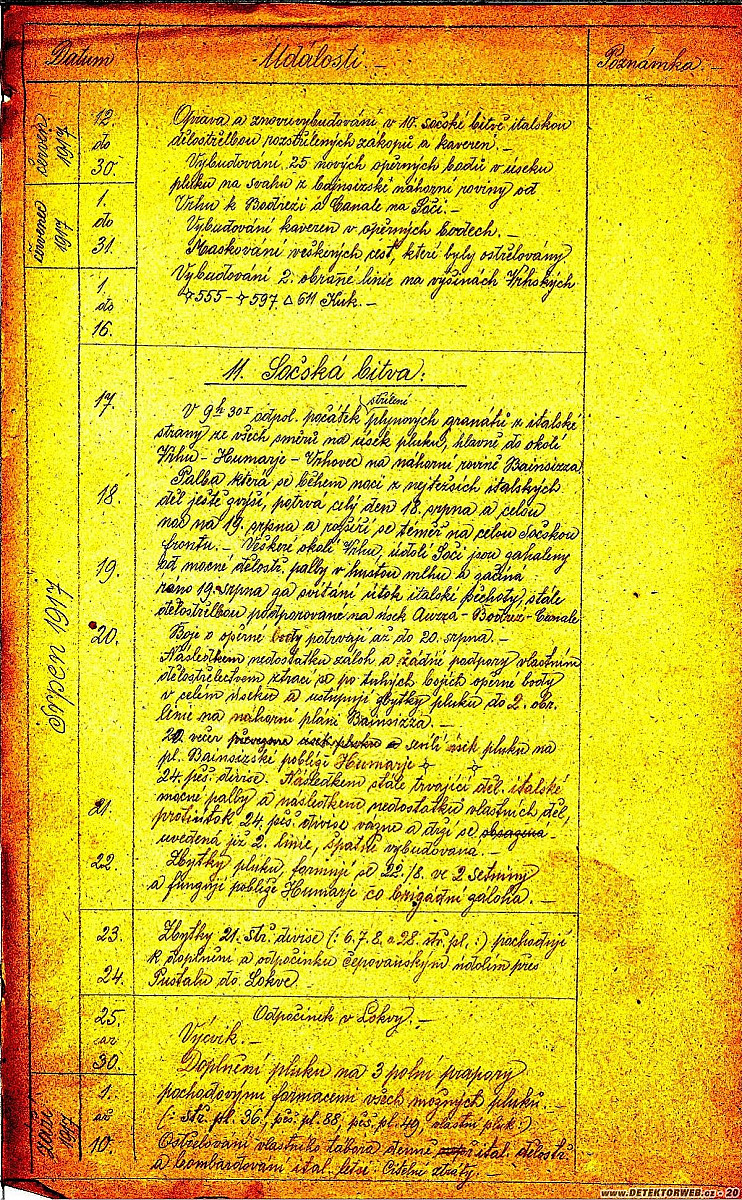 Datum Události.- Poznámka.-
červen 1917
12 do 30.
Oprava a znovuvybudování v 10. sočské bitvě italskou
dělostřelbou rozstřílených zákopů a kaveren.-
Vybudování 25 nových opěrných bodů v úseku
pluku na svahu z Bainsizské náhorní roviny od
Vrhu k Bodrezi a Canale na Soči.-
červenec 1917
1. do 31.
Vybudování kaveren v opěrných bodech.-
Maskování veškerých cest, které byly ostřelovány.
1. do 16.
Vybudování 2. obranné linie na výšinách Vrhských
555 - 597 △ 611 Kuk.-
Srpen 1917
11. Sočská bitva:
17.
V 9h 30I odpol. počátek střílení plynových granátů z italské
strany ze všech směrů na úsek pluku, hlavně do okolí
Vrhu - Humarje - Vrhovec na náhorní rovině Bainsizza.
18.
Palba která se během noci z nejtěžších italských
děl ještě zvýší, potrvá celý den 18. srpna a celou
noc na 19. srpna a rozšíří se téměř na celou Sočskou
frontu.- Veškeré okolí Vrhu, údolí Soči jsou zahaleny
19.
od mocné dělostř. palby v hustou mlhu a začíná
ráno 19. srpna za svítání útok italské pěchoty, stále
dělostřelbou podporované na úsek Auzza-Bodrez-Canale
20.
Boje o opěrné body potrvají až do 20. srpna.-
Následkem nedostatku záloh a žádné podpory vlastním
dělostřelectvem ztrácí se po tuhých bojích opěrné body
v celém úseku a ustupují zbytky pluku do 2. obr.
linie na náhorní pláni Bainsizza.-
20. večer převezme úsek pluku a sesílí úsek pluku na
pl. Bainsizské poblíže Humarje
24. pěš. divise. Následkem stále trvající děl. italské
21.
mocné palby a následkem nedostatku vlastních děl,
protiútok 24. pěš. divise vázne a drží se obsazena
uvedená již 2. linie, špatně vybudovaná.-
22.
Zbytky pluku, formují se 22./8. ve 2 setniny
a fungují poblíže Humarje co brigádní záloha.-
23.
Zbytky 21. stř. divise (: 6. 7. 8. a 28. stř. pl. :) pochodují
k doplnění a odpočinku Čepovanským údolím přes
24.
Pustalu do Lokve.
25. až 30.
Odpočinek v Lokvy.-
Výcvik.-
Doplnění pluku na 3 polní prapory
září 1917
1. až 10.
pochodovými formacemi všech možných pluků.-
(: stř. pl. 36, pěš. pl. 88, pěš. pl. 49, vlastní pluk :)
Ostřelování vlastního tábora denně ital. dělostř.
a bombardování ital. letci. Citelné ztráty.-
www.DETEKTORWEB.cz - 20